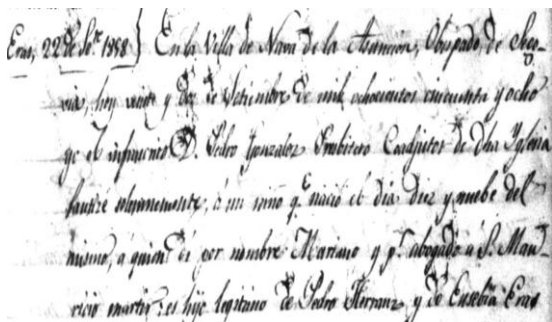 Eras, 22 de Se.e 1858 } En la Villa de Nava de la Asuncion, Obispado de Sego-
via, hoy veinte y dos de Setiembre de mil ochocientos cincuenta y ocho
yo el infrascrito D. Pedro Gonzalez Presbitero Coadjutor de Dha Yglesia
bautizé solemnemente, á un niño q.e nació el dia diez y nuebe del
mismo, á quien di por nombre Mariano y p.r abogado á S. Mau-
ricio martir: es hijo legitimo de Pedro Herranz, y de Eusebia Eras